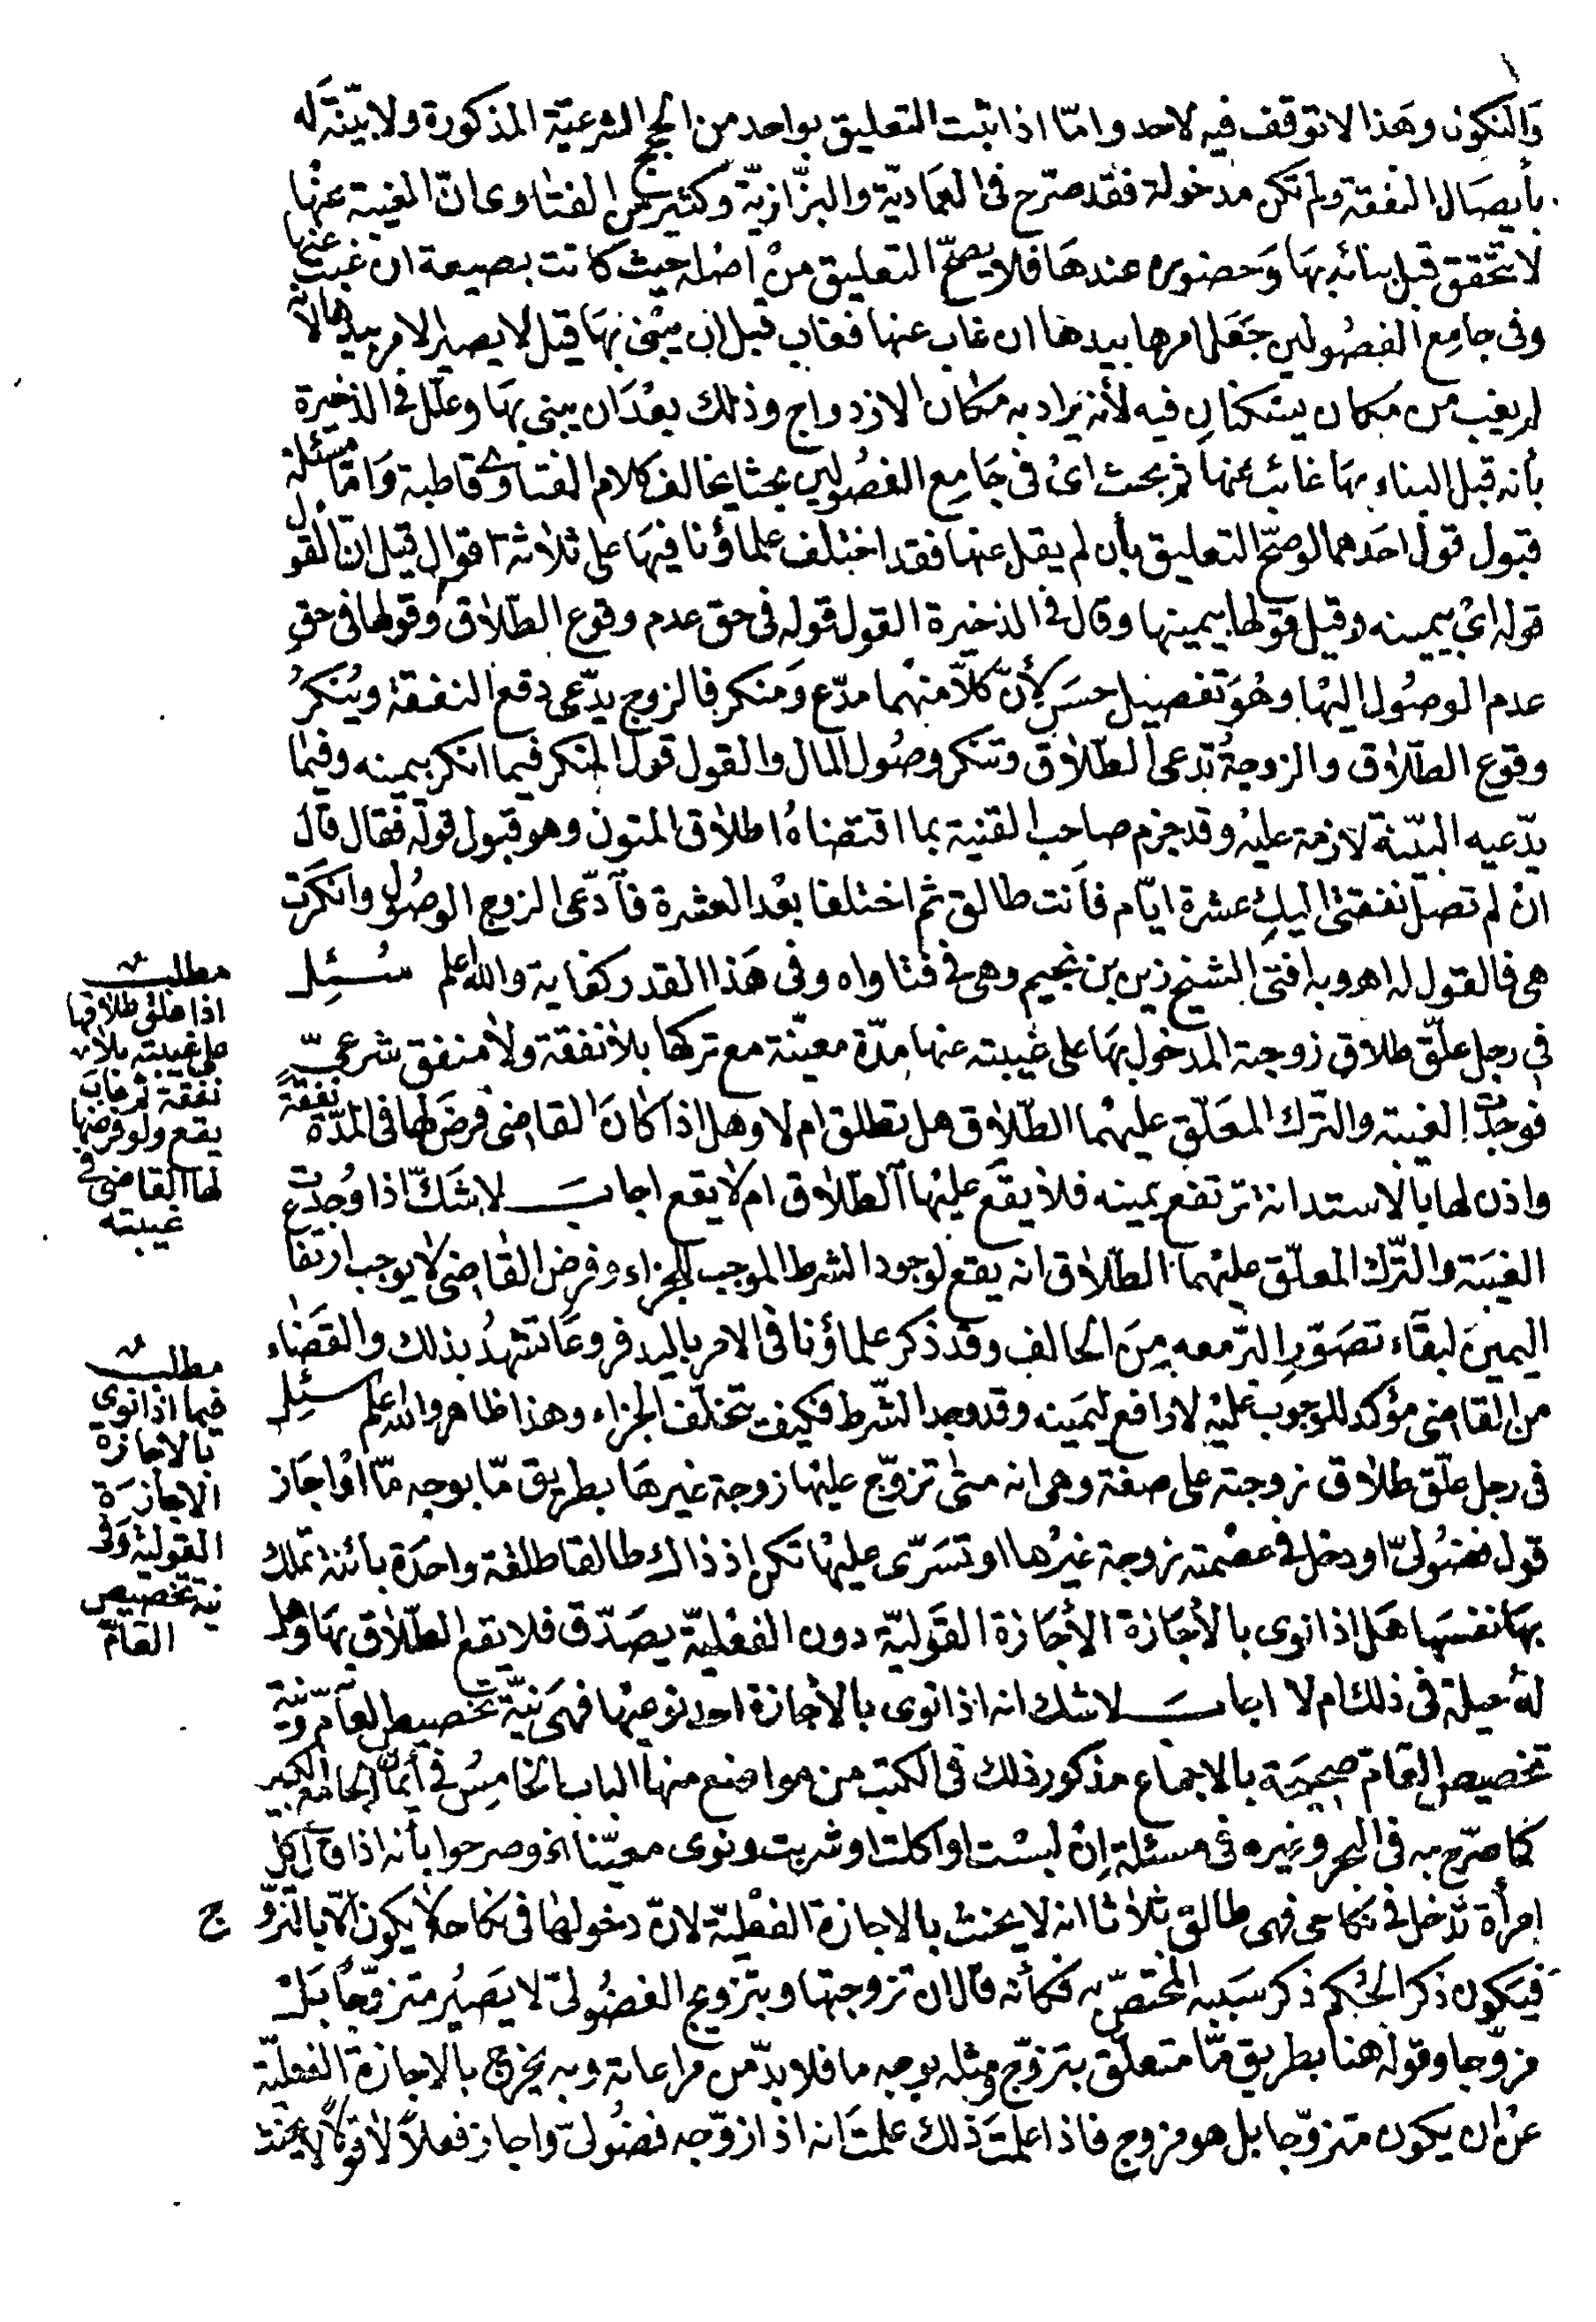 والنكول وهذا لا توقف فيه لاحد واما اذا ثبت التعليق بواحد من الحجج الشرعية المذكورة ولا بينة له
بأيصال النفقة ولم تكن مدخولة فقد صرح فى العمادية والبزازية وكثير من الفتاوى ان الغيبة عنها
لا تتحقق قبل بنائه بها وحضوره عندها فلا يصح التعليق من اصله حيث كانت بصيغة ان غبت عنها
وفى جامع الفصولين جعل امرها بيدها ان غاب عنها فغاب قبل ان يبنى بها قيل لا يصير الامر بيدها لانه
لم يغب من مكان يسكنان فيه لأنه يراد به مكان الازدواج وذلك بعد ان يبنى بها وعلل فى الذخيرة
بأنه قبل البناء بها غائب عنها ثم بحث اى فى جامع الفصولين بحثا يخالف كلام الفتاوى قاطبة واما مسئلة
قبول قول احدهما لو صح التعليق بأن لم يقل عنها فقد اختلف علماؤنا فيها على ثلاثة اقوال قيل ان القول
قوله اى بيمينه وقيل قولها بيمينها وقال فى الذخيرة القول قوله فى حق عدم وقوع الطلاق وقولها فى حق
عدم الوصول اليها وهو تفصيل حسن لأن كلا منهما مدع ومنكر فالزوج يدعى دفع النفقة وينكر
وقوع الطلاق والزوجة تدعى الطلاق وتنكر وصول المال والقول قول المنكر فيما انكر بيمينه وفيما
يدعيه البينة لازمة عليه وقد جزم صاحب القنية بما اقتضاه اطلاق المتون وهو قبول قوله فقال قال
ان لم تصل نفقتى اليك عشرة ايام فأنت طالق ثم اختلفا بعد العشرة فادعى الزوج الوصول وانكرت
هى فالقول له اهـ وبه افتى الشيخ زين بن نجيم وهى فى فتاواه وفى هذا القدر كفاية والله اعلم سئل
فى رجل علق طلاق زوجته المدخول بها على غيبته عنها مدة معينة مع تركها بلا نفقة ولا منفق شرعى
فوجدت الغيبة والترك المعلق عليهما الطلاق هل تطلق ام لا وهل اذا كان القاضى فرض لها فى المدة نفقة
واذن لها بالاستدانة ترتفع يمينه فلا يقع عليها الطلاق ام لا يقع اجاب لا شك اذا وجدت
الغيبة والترك المعلق عليهما الطلاق انه يقع لوجود الشرط الموجب للجزاء وفرض القاضى لا يوجب ارتفاع
اليمين لبقاء تصور البر معه من الحالف وقد ذكر علماؤنا فى الامر باليد فروعا تشهد بذلك والقضاء
من القاضى مؤكد للوجوب عليه لا رافع ليمينه وقد وجد الشرط فكيف يتخلف الجزاء وهذا ظاهر والله اعلم سئل
فى رجل علق طلاق زوجته على صفة وهى انه متى تزوج عليها زوجة غيرها بطريق ما بوجه ما او اجاز
قول فضولى او دخل فى عصمته زوجة غيرها او تسرى عليها تكن اذ ذاك طالقا طلقة واحدة بائنة تملك
بها نفسها هل اذا نوى بالأجازة الأجازة القولية دون الفعلية يصدق فلا يقع الطلاق بها وهل
له حيلة فى ذلك ام لا اجاب لا شك انه اذا نوى بالأجازة احد نوعيها فهى نية تخصيص العام ونية
تخصيص العام صحيحة بالاجماع مذكور ذلك فى الكتب من مواضع منها الباب الخامس فى أيمان الجامع الكبير
كما صرح به فى البحر وغيره فى مسئلة إن لبست او اكلت او شربت ونوى معينا الخ وصرحوا بأنه اذا قال كل
امرأة تدخل فى نكاحى فهى طالق ثلاثا انه لا يحنث بالاجازة الفعلية لان دخولها فى نكاحه لا يكون الا بالتزوج
فيكون ذكر الحكم ذكر سببه المختص به فكأنه قال ان تزوجتها وبتزويج الفضولى لا يصير متزوجا بل
مزوجا وقوله هنا بطريق ما متعلق بتزوج ومثله بوجه ما فلا بد من مراعاته وبه يخرج بالاجازة الفعلية
عن ان يكون متزوجا بل هو مزوج فاذا علمت ذلك علمت انه اذا زوجه فضولى واجاز فعلا لا قولا لا يحنث
مطلب
اذا علق طلاقها
على غيبته بلا
نفقة ثم غاب
يقع ولو فرضها
لها القاضى فى
غيبته
مطلب
فيما اذا نوى
بالاجازة
الاجازة
القولية وفى
نية تخصيص
العام